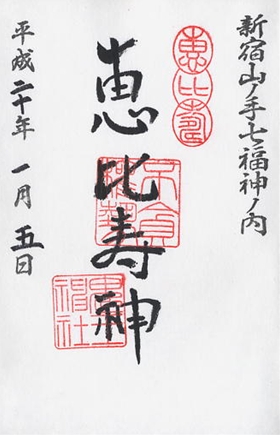 新宿山ノ手七福神ノ内
恵比壽
恵比寿神
平成二十年一月五日